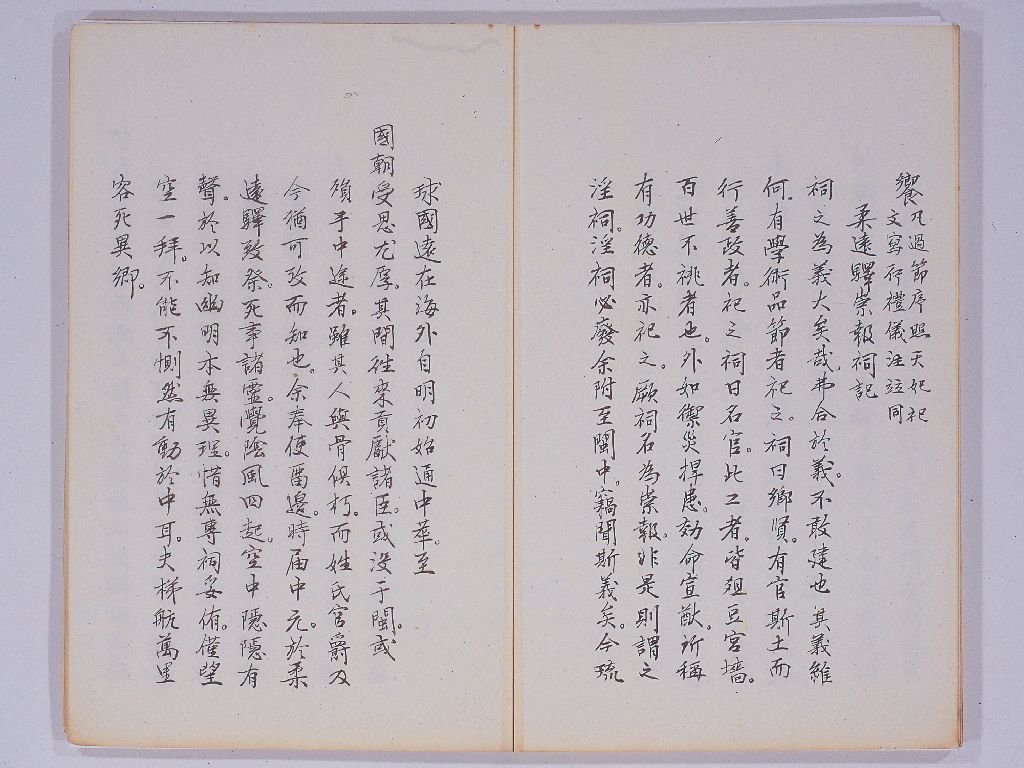 饗凡遇節序照天妃祀
文寫行禮儀注竝同
柔遠驛崇報祠記
祠之為義大矣哉。弗合於義。不敢建也其義維
何。有學術品節者祀之。祠曰鄉賢。有官斯土而
行善政者。祀之祠曰名官。此二者。皆俎豆宮墻。
百世不祧者也。外如禦災捍患。効命宣猷。所稱
有功德者。亦祀之。厥祠名為崇報。非是則謂之
淫祠。淫祠必廢余附至閩中。竊聞斯義矣。今琉
球國遠在海外自明初始通中華。至
國朝受恩尤厚。其間往來貢獻諸臣。或没于閩。或
殞于中途者。雖其人與骨俱朽。而姓氏官爵及
今猶可攷而知也。余奉使留邊。時届中元。於柔
遠驛致祭。死事諸靈。覺陰風四起。空中隱隱有
聲。於以知幽明本無異理。惜無專祠妥侑。僅望
空一拜。不能不惻然有動於中耳。夫梯航萬里
客死異鄉。